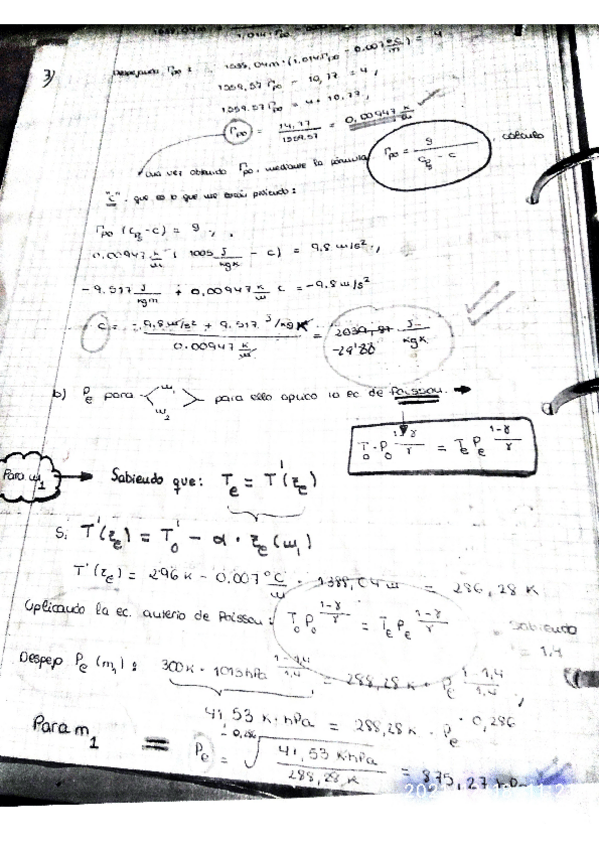 3)
Despejando Γpo : 1538,04m · (1,014Γpo - 0.007 °C/m) = 4
1559.57 Γpo - 10,77 = 4 ,
1559.57 Γpo = 4 + 10.77,
Γpo = 14,77 / 1559.57 = 0,00947 K/m
una vez obtenido Γpo, mediante la fórmula Γpo = g / (Cp - c) , cálculo
"c", que es lo que me están pidiendo:
Γpo (Cp - c) = g ,
0.00947 K/m ( 1005 J/kgK - c) = 9.8 m/s² ,
-9.517 J/kgm + 0,00947 K/m c = -9.8 m/s²
c = -9.8 m/s² + 9.517 J/kgK / 0.00947 K/m = -29'88 J/kgK
b) Pe para m1 m2 para ello aplico la ec. de Poisson. →
T0 · P0^(1-γ/γ) = Te Pe^(1-γ/γ)
Para m1 → Sabiendo que: Te = T'(ze)
Si T'(ze) = T0' - α · ze (m1)
T'(ze) = 296 K - 0.007 °C/m · 1388,04 m = 286,28 K
Aplicando la ec. anterio de Poisson: T0 P0^(1-γ/γ) = Te Pe^(1-γ/γ) Sabiendo
= 1,4
Despejo Pe (m1) : 300K · 1013hPa^(1-1,4/1,4) = 288,28K · Pe^(1-1,4/1,4) ,
41,53 K·hPa = 288,28K · Pe^-0,286
Para m1 = Pe = -0,286√(41,53 K·hPa / 288,28 K) = 875,27